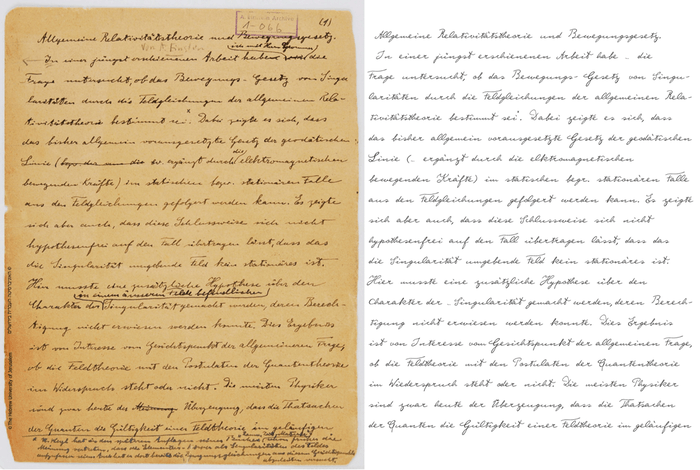 (1)
A. Einstein Archive
1-066
Allgemeine Relativitätstheorie und Bewegungsgesetz.
Von A. Einstein
In einer jüngst erschienenen Arbeit habe die
Frage untersucht, ob das Bewegungs-Gesetz von Singu-
laritäten durch die Feldgleichungen der allgemeinen Rela-
tivitätstheorie bestimmt sei. Dabei zeigte es sich, dass
das bisher allgemein vorausgesetzte Gesetz der geodätischen
Linie (bezw. ergänzt durch die elektromagnetischen
bewegenden Kräfte) im statischen bezw. stationären Falle
aus den Feldgleichungen gefolgert werden kann. Es zeigte
sich aber auch, dass diese Schlussweise sich nicht
hypothesenfrei auf den Fall übertragen lässt, dass das
die Singularität umgebende Feld kein stationäres ist.
Hier musste eine zusätzliche Hypothese über den
in einem äusseren Felde befindlicher
Charakter der Singularität gemacht werden, deren Berech-
tigung nicht erwiesen werden konnte. Dies Ergebnis
ist von Interesse vom Gesichtspunkt der allgemeineren Frage,
ob die Feldtheorie mit den Postulaten der Quantentheorie
im Widerspruch steht oder nicht. Die meisten Physiker
sind zwar heute der Überzeugung, dass die Thatsachen
der Quanten die Gültigkeit einer Feldtheorie im geläufigen
©The Hebrew University of Jerusalem
Allgemeine Relativitätstheorie und Bewegungsgesetz.
In einer jüngst erschienenen Arbeit habe - die
Frage untersucht, ob das Bewegungs- Gesetz von Singu-
laritäten durch die Feldgleichungen der allgemeinen Rela-
tivitätstheorie bestimmt sei. Dabei zeigte es sich, dass
das bisher allgemein vorausgesetzte Gesetz der geodätischen
Linie (. ergänzt durch die elktromagnetischen
bewegenden Kräfte) im statischen begr. stationären Falle
aus den Feldgleichungen gefolgert werden kann. Es zeigte
sich aber auch, dass diese Schlussweise sich nicht
hypothesenfrei auf den Fall übertragen lässt, dass das
die Singularität umgebende Feld kein stationäres ist.
Hier musste eine zusätzliche Hypothese über den
Charakter der - Singularität gemacht werden, deren Berech-
tigung nicht erwiesen werden konnte. Dies Ergebnis
ist von Interesse vom Gesichtspunkt der allgemeinen Frage,
ob die Feldtheorie mit den Postulaten der Quantentheorie
im Wiederspruch steht oder nicht. Die meisten Physiker
sind zwar heute der Überzeugung, dass die Thatsachen
der Quanten die Gültigkeit einer Feldtheorie im geläufigen